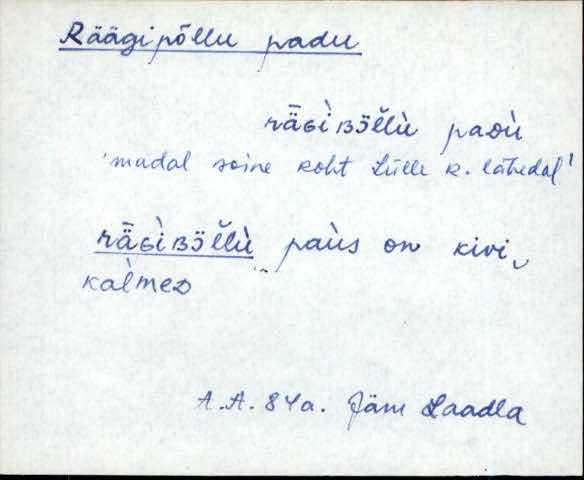 Räägipõllu padu
rāɢi̇̀ʙɜ̈̆llù paᴅù
'madal soine koht Lülle k. lähedal'
rāɢi̇̀ʙɜ̈̆llù paùs on kivi‿
kàlmeᴅ
A.A. 84a. Jäm Laadla